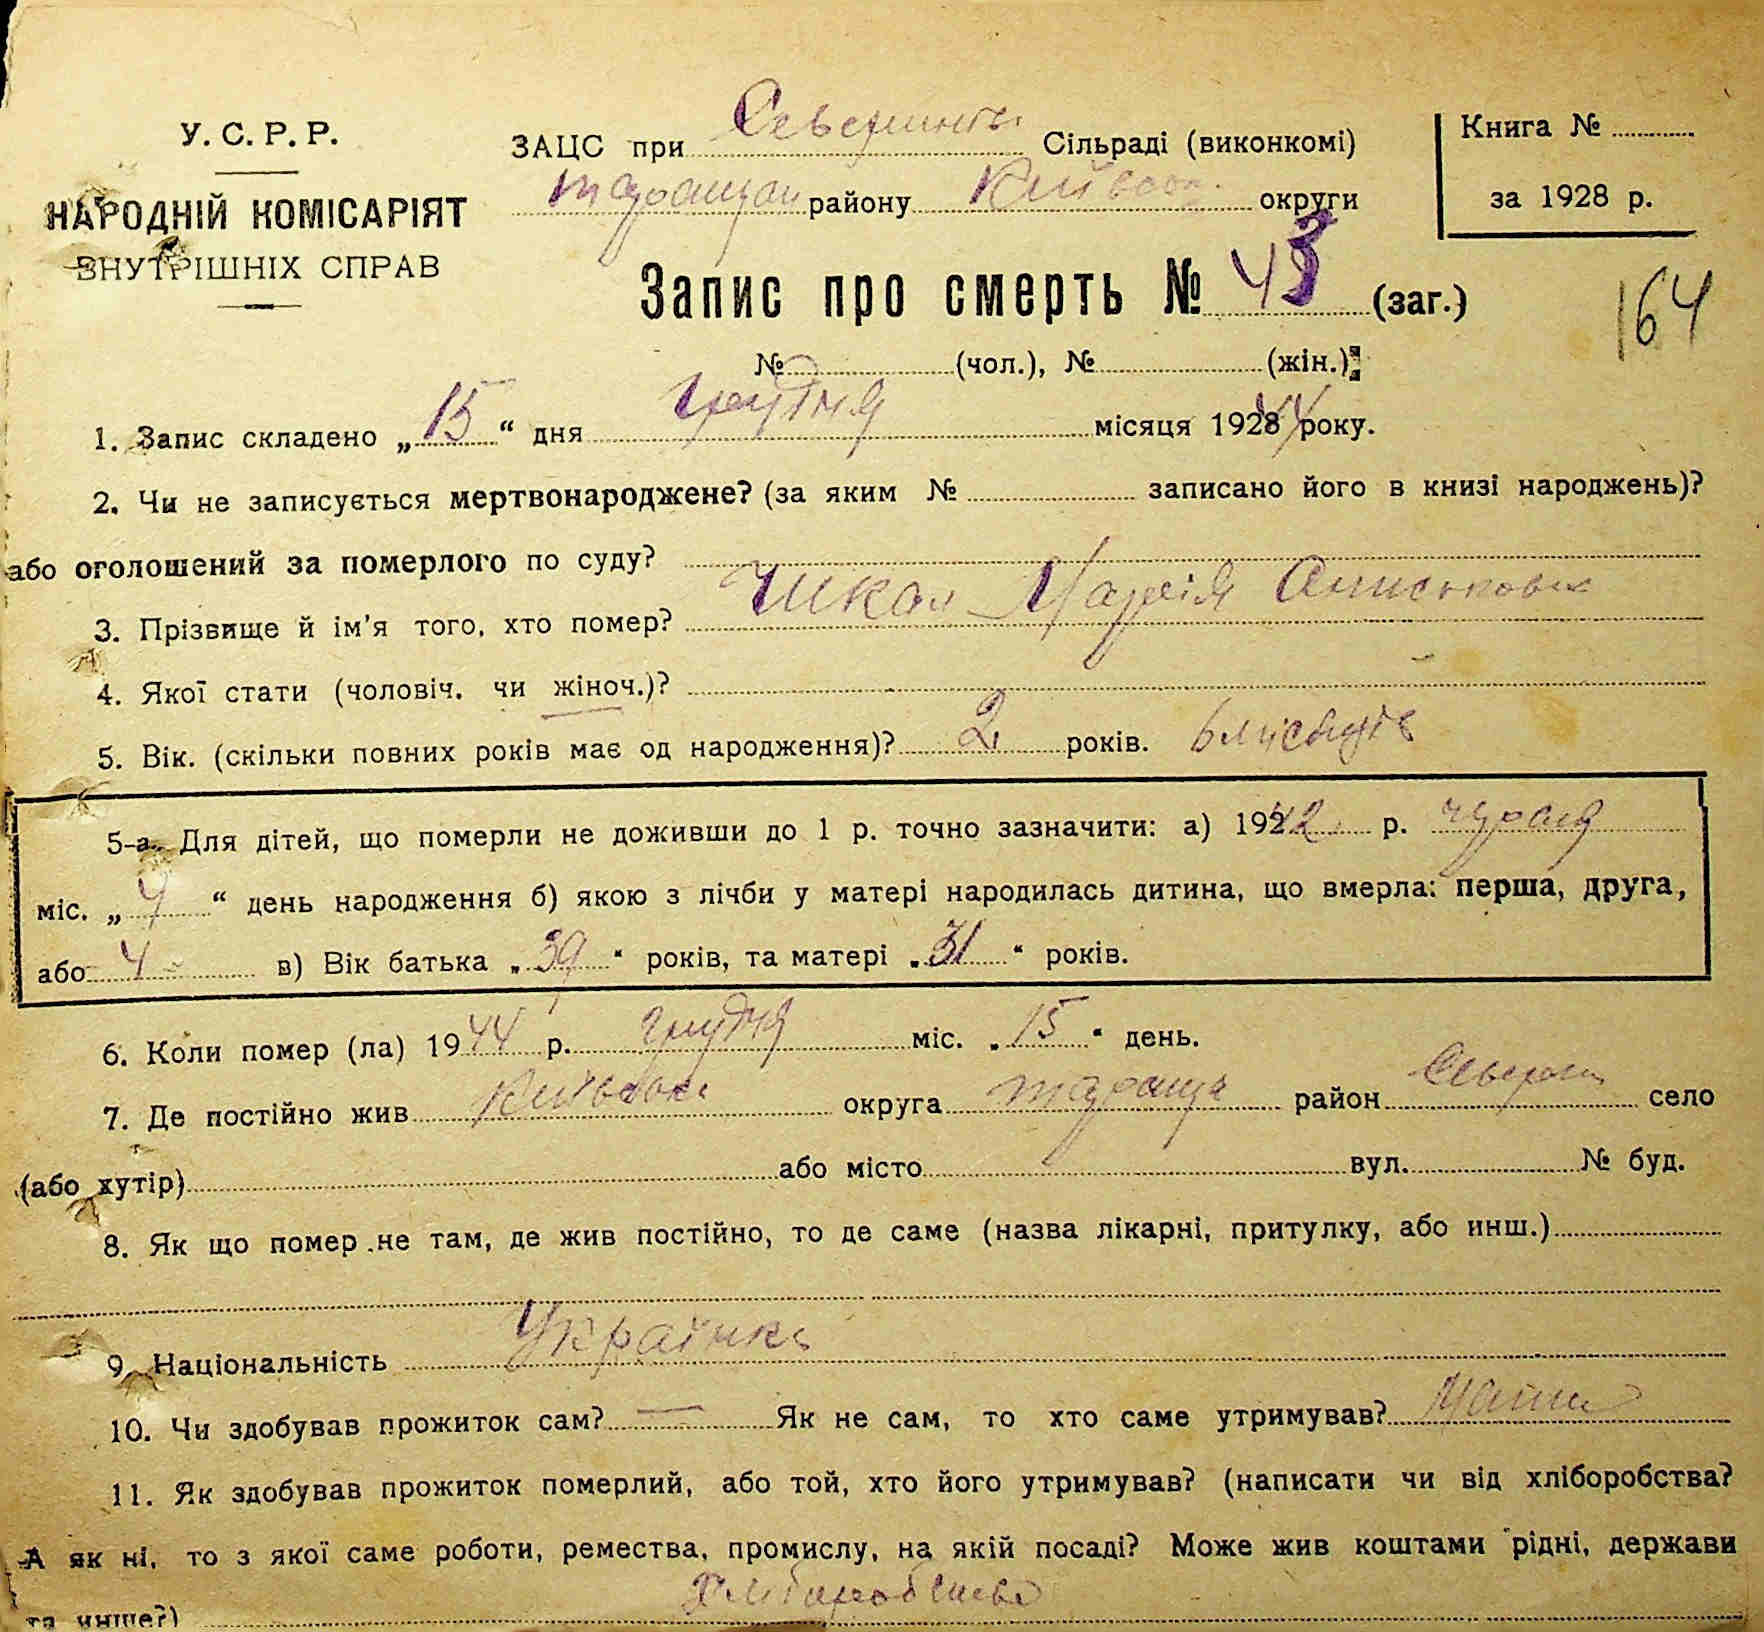 У. С. Р. Р.
НАРОДНІЙ КОМІСАРІЯТ
ВНУТРІШНІХ СПРАВ
ЗАЦС при Северинів. Сільраді (виконкомі)
Таращан району Київськ. округи
Книга №
за 1928 р.
Запис про смерть № 43 (заг.)
164
№ (чол.), № (жін.);
1. Запис складено „15“ дня грудня місяця 1944 року.
2. Чи не записується мертвонароджене? (за яким № записано його в книзі народжень)?
або оголошений за померлого по суду?
3. Прізвище й ім’я того, хто помер? Марія
4. Якої стати (чоловіч. чи жіноч.)?
5. Вік. (скільки повних років має од народження)? 2 років. 6 місяців
5-а. Для дітей, що померли не доживши до 1 р. точно зазначити: а) 1942 р.
міс. „ “ день народження б) якою з лічби у матері народилась дитина, що вмерла: перша, друга,
або 4 в) Вік батька „39“ років, та матері „31“ років.
6. Коли помер (ла) 1944 р. грудня міс. „15“ день.
7. Де постійно жив Київськ округа Тараща район Северин село
(або хутір) або місто вул. № буд.
8. Як що помер не там, де жив постійно, то де саме (назва лікарні, притулку, або инш.)
9. Національність Українка
10. Чи здобував прожиток сам? — Як не сам, то хто саме утримував? Мати
11. Як здобував прожиток померлий, або той, хто його утримував? (написати чи від хліборобства?
А як ні, то з якої саме роботи, ремества, промислу, на якій посаді? Може жив коштами рідні, держави
та инше?)